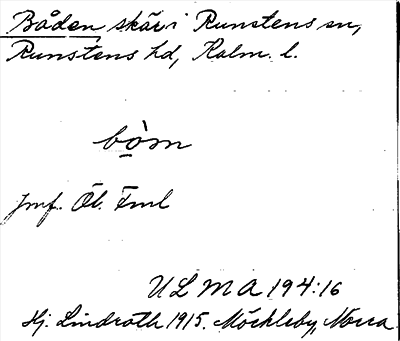 Båden skär i Runstens sn,
Runstens hd, Kalm. l.
bòm
Jmf. Öl. Fml
ULMA 194:16
Hj. Lindroth 1915. Möckleby, Norra